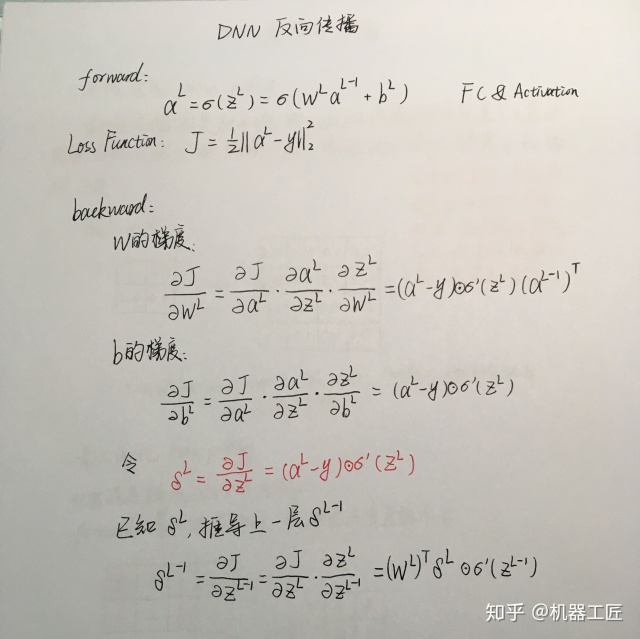 DNN 反向传播
forward:
a^L = σ(z^L) = σ(W^L a^{L-1} + b^L) FC & Activation
Loss Function: J = \frac{1}{2}||a^L - y||_2^2
backward:
W的梯度:
\frac{∂J}{∂W^L} = \frac{∂J}{∂a^L} · \frac{∂a^L}{∂z^L} · \frac{∂z^L}{∂W^L} = (a^L - y)⊙σ'(z^L)(a^{L-1})^T
b的梯度:
\frac{∂J}{∂b^L} = \frac{∂J}{∂a^L} · \frac{∂a^L}{∂z^L} · \frac{∂z^L}{∂b^L} = (a^L - y)⊙σ'(z^L)
令 δ^L = \frac{∂J}{∂z^L} = (a^L - y)⊙σ'(z^L)
已知 δ^L, 推导上一层 δ^{L-1}
δ^{L-1} = \frac{∂J}{∂z^{L-1}} = \frac{∂J}{∂z^L} · \frac{∂z^L}{∂z^{L-1}} = (W^L)^T δ^L ⊙σ'(z^{L-1})
知乎 @机器工匠